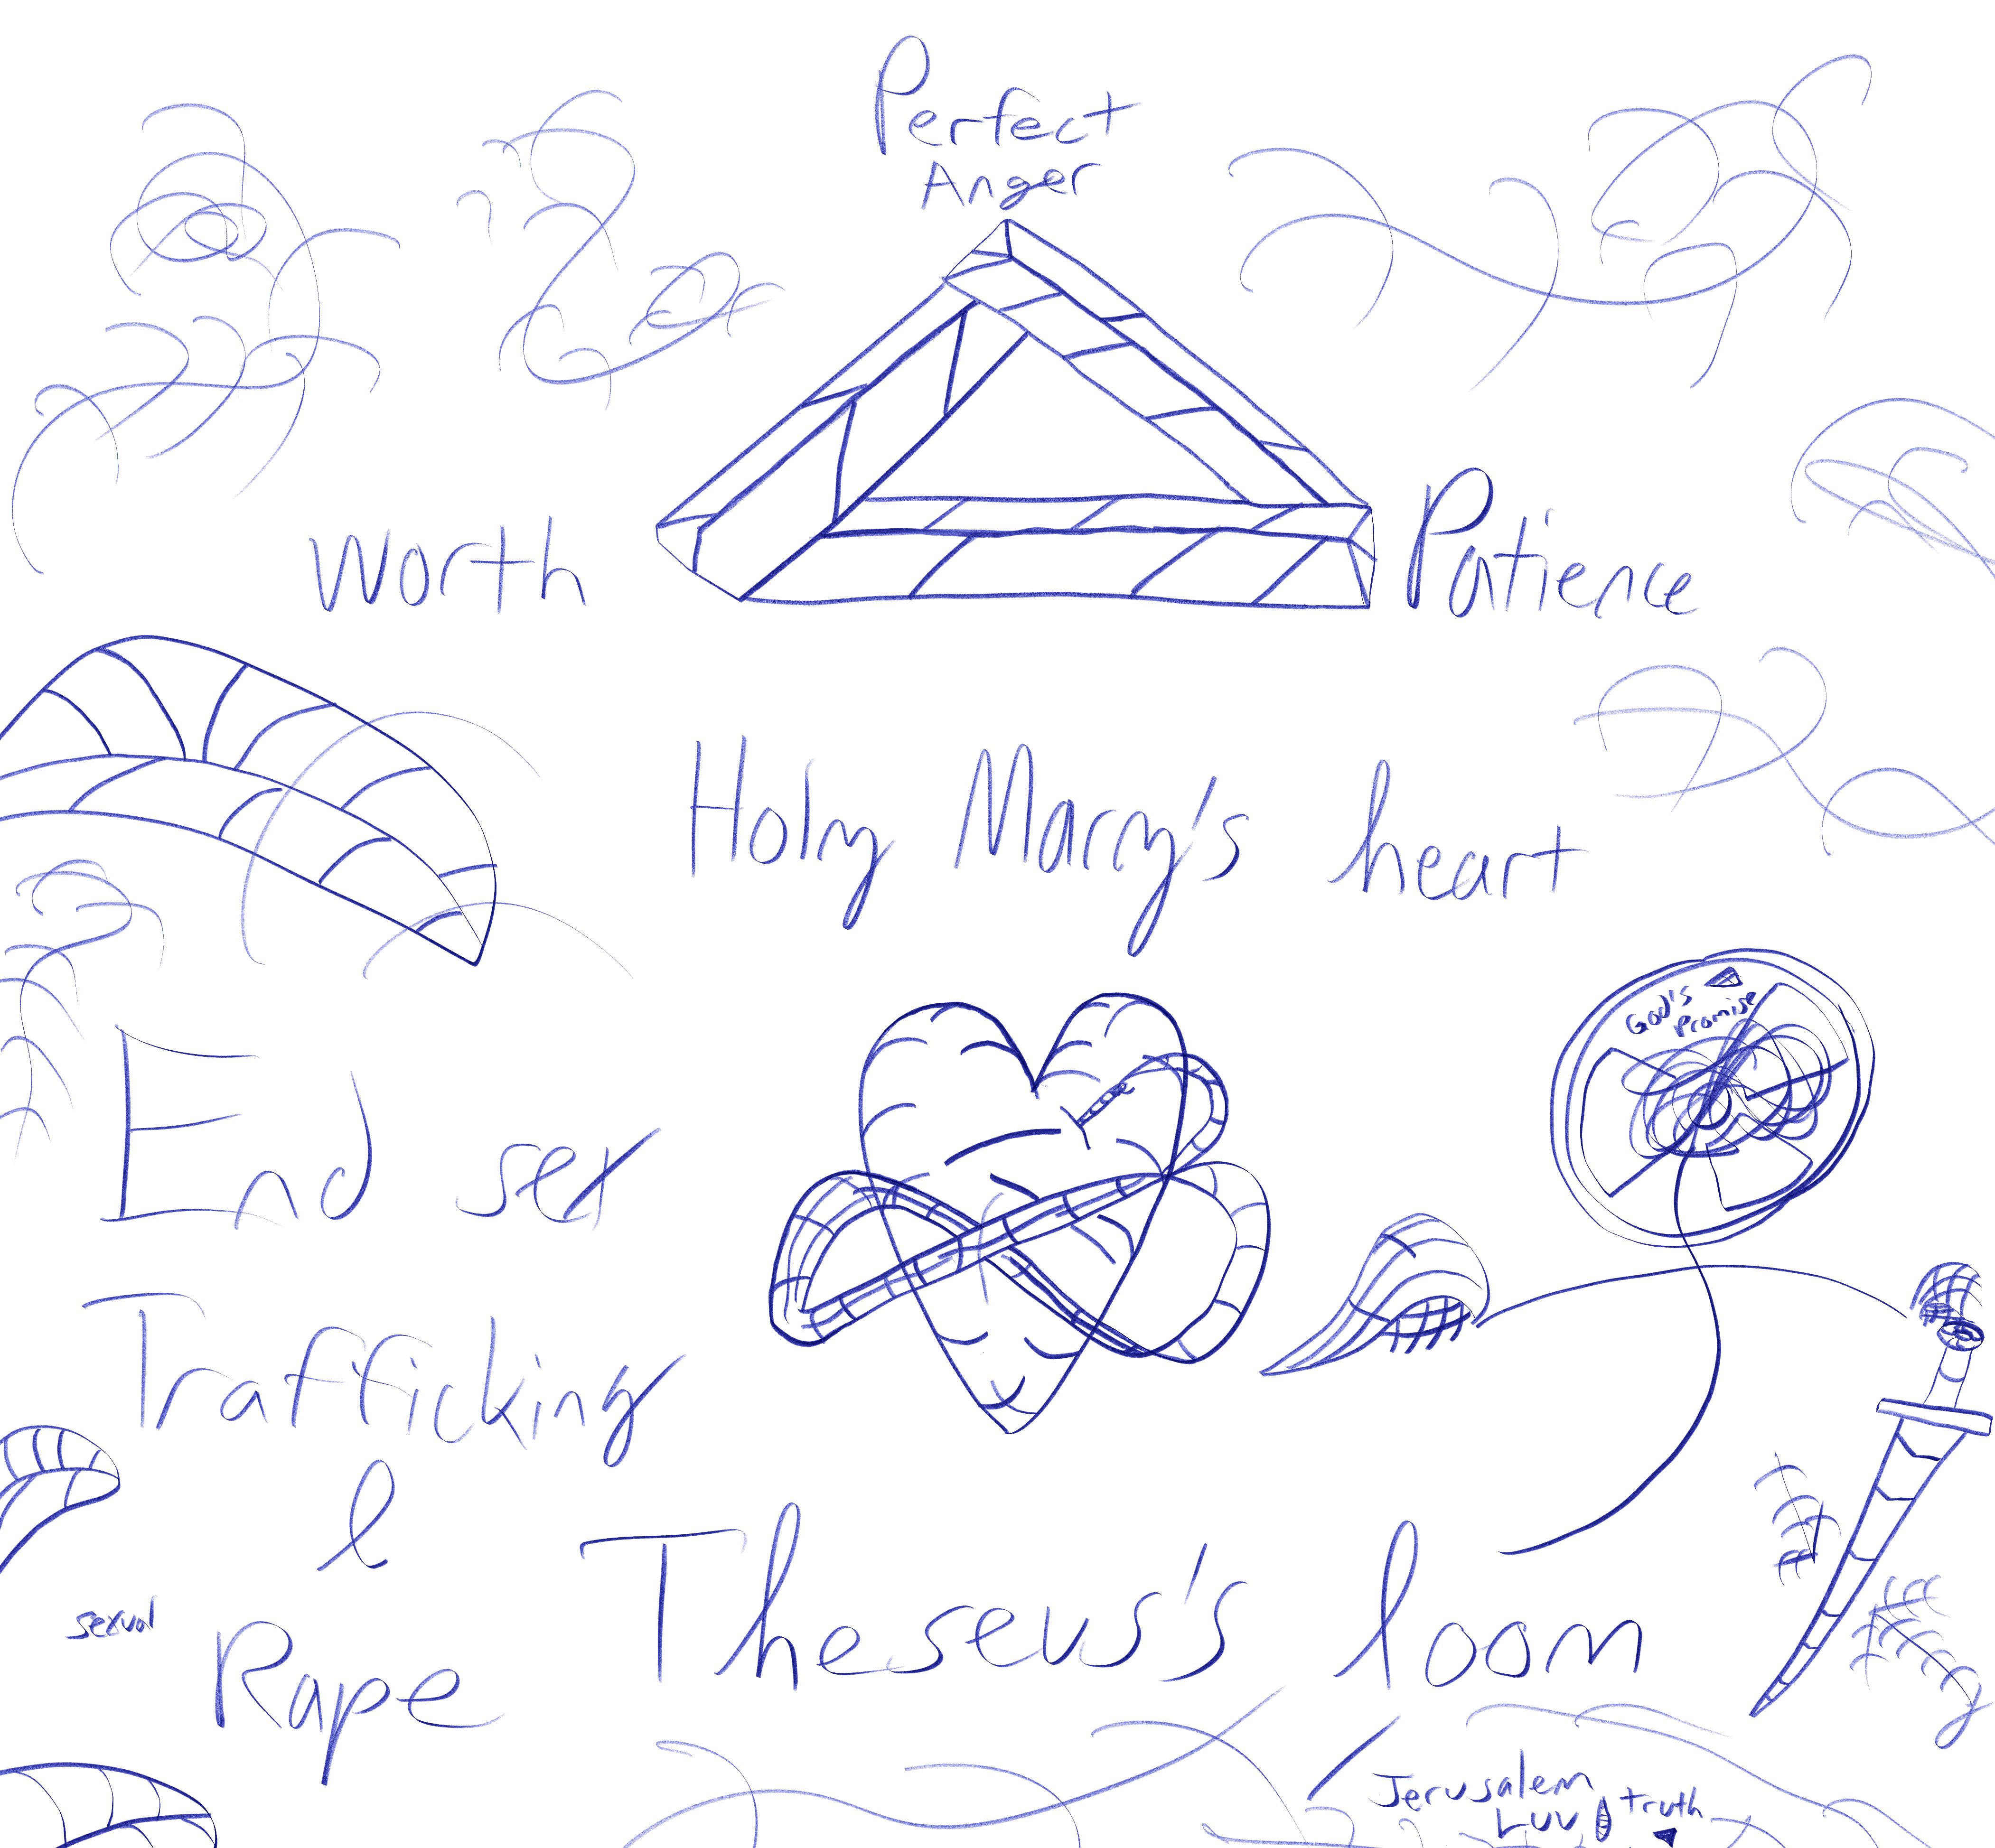 Perfect
Anger
Worth
Patience
Holy Mary's heart
God's
Promise
End sex
Trafficking
&
sexual
Rape
Theseus's loom
Jerusalem
Luv
truth